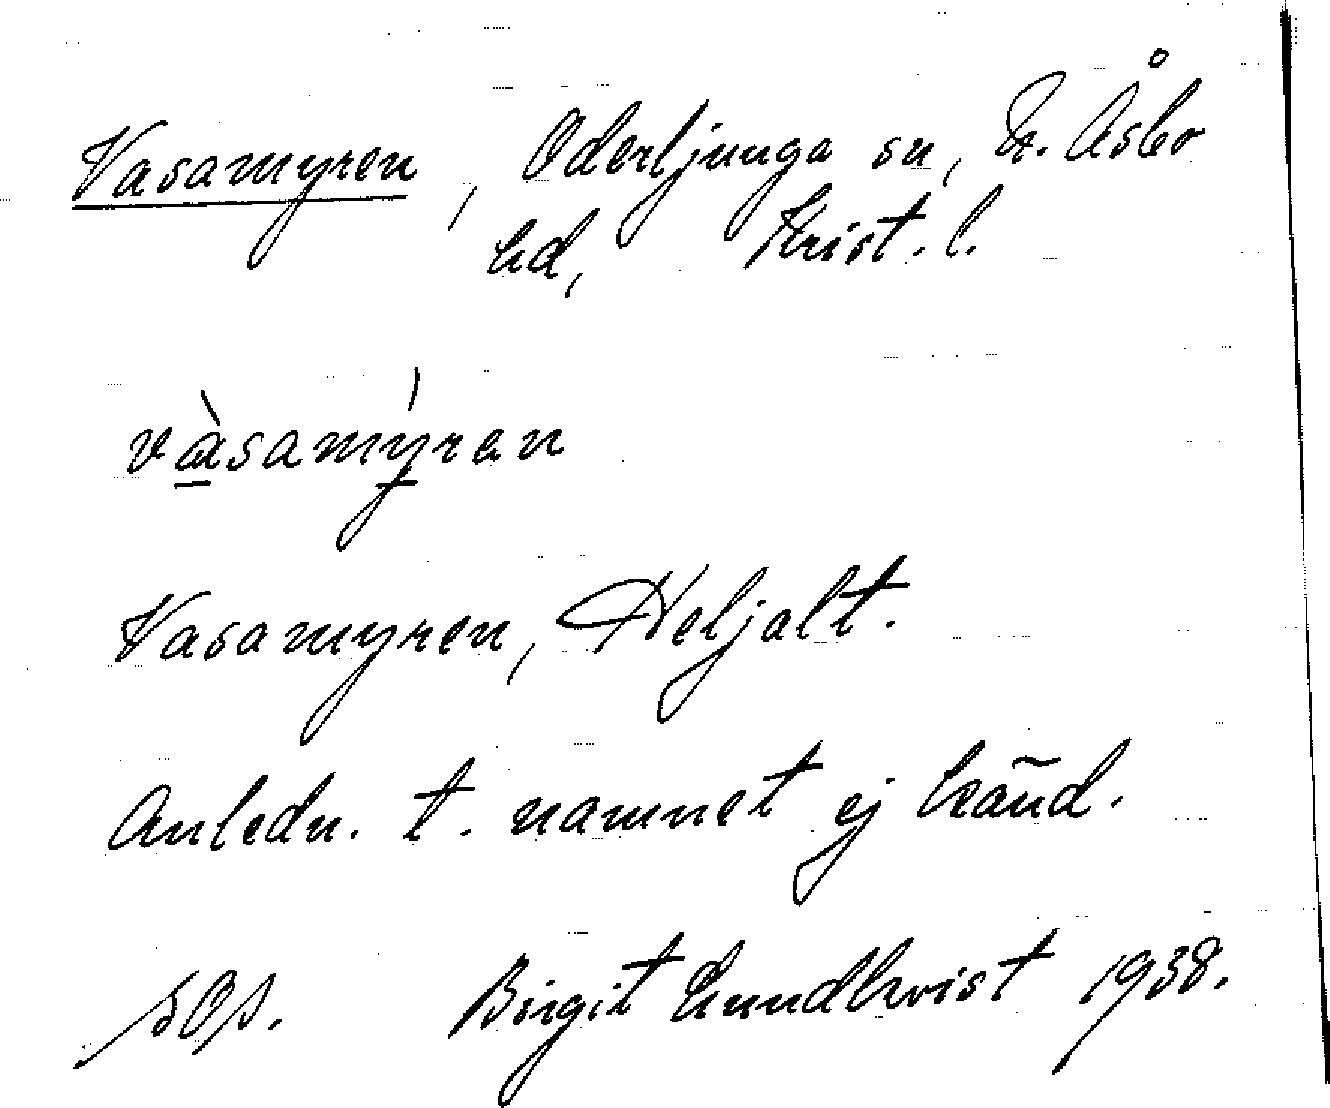 Vasamyren, Oderljunga sn, N. Åsbo
hd, Krist. l.
vàsamýren
Vasamyren, Heljalt.
Anledn. t. namnet ej känd.
Birgit Lundkvist 1938.